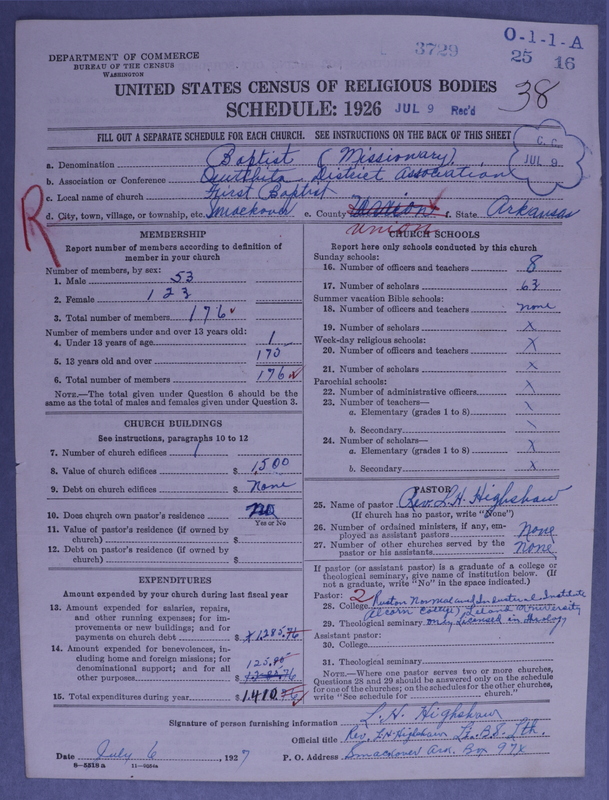 O-1-1-A
3729
25 16
DEPARTMENT OF COMMERCE
BUREAU OF THE CENSUS
WASHINGTON
UNITED STATES CENSUS OF RELIGIOUS BODIES
SCHEDULE: 1926 JUL 9 Rec'd 38
FILL OUT A SEPARATE SCHEDULE FOR EACH CHURCH. SEE INSTRUCTIONS ON THE BACK OF THIS SHEET
C. C.
JUL 9
a. Denomination Baptist (Missionary)
b. Association or Conference Ouichita District Association
c. Local name of church First Baptist
R
d. City, town, village, or township, etc. Smackover e. County Union f. State Arkansas
MEMBERSHIP
Report number of members according to definition of member in your church
Number of members, by sex:
1. Male 53
2. Female 123
3. Total number of members 176
Number of members under and over 13 years old:
4. Under 13 years of age 1
5. 13 years old and over 170
6. Total number of members 176
NOTE.—The total given under Question 6 should be the same as the total of males and females given under Question 3.
CHURCH BUILDINGS
See instructions, paragraphs 10 to 12
7. Number of church edifices 1
8. Value of church edifices $ 1,500
9. Debt on church edifices $ None
10. Does church own pastor's residence? no
Yes or No
11. Value of pastor's residence (if owned by church) $
12. Debt on pastor's residence (if owned by church) $
EXPENDITURES
Amount expended by your church during last fiscal year
13. Amount expended for salaries, repairs, and other running expenses; for improvements or new buildings; and for payments on church debt $ 1,285.76
14. Amount expended for benevolences, including home and foreign missions; for denominational support; and for all other purposes $ 125.00
15. Total expenditures during year $ 1,410.76
CHURCH SCHOOLS
Report here only schools conducted by this church
Sunday schools:
16. Number of officers and teachers 8
17. Number of scholars 63
Summer vacation Bible schools:
18. Number of officers and teachers none
19. Number of scholars X
Week-day religious schools:
20. Number of officers and teachers X
21. Number of scholars X
Parochial schools:
22. Number of administrative officers X
23. Number of teachers—
a. Elementary (grades 1 to 8) X
b. Secondary \
24. Number of scholars—
a. Elementary (grades 1 to 8) X
b. Secondary X
PASTOR
25. Name of pastor Rev. L. H. Highshaw
(If church has no pastor, write "None")
26. Number of ordained ministers, if any, employed as assistant pastors None
27. Number of other churches served by the pastor or his assistants None
If pastor (or assistant pastor) is a graduate of a college or theological seminary, give name of institution below. (If not a graduate, write "No" in the space indicated.)
Pastor: 2 Ruston Normal and Industrial Institute
28. College (Alcorn College) Leland University
29. Theological seminary only Licensed in
Assistant pastor:
30. College
31. Theological seminary
NOTE.—Where one pastor serves two or more churches, Questions 28 and 29 should be answered only on the schedule for one of the churches; on the schedules for the other churches, write "See schedule for church."
Signature of person furnishing information L. H. Highshaw
Official title Rev. L. H. Highshaw
Date July 6, 1927 P. O. Address Smackover Ark. Box 97X
8—5518a 11—9054a